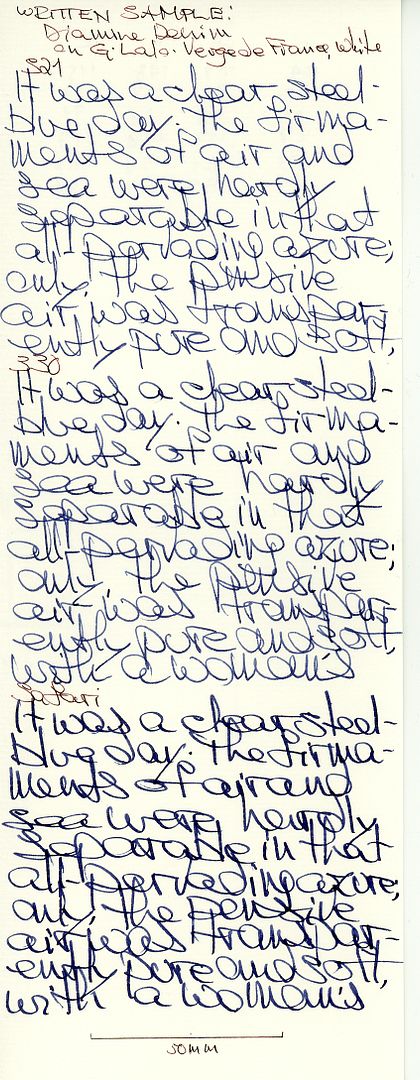 WRITTEN SAMPLE:
Diamine Denim
on G. Lalo. Verge de France, White
S21
It was a clear steel-
blue day. The firma-
ments of air and
sea were hardly
separable in that
all-pervading azure;
only, the pensive
air was transpar-
ently pure and soft,
330
It was a clear steel-
blue day. The firma-
ments of air and
sea were hardly
separable in that
all-pervading azure;
only, the pensive
air was transpar-
ently pure and soft,
with a woman's
Safari
It was a clear steel-
blue day. The firma-
ments of air and
sea were hardly
separable in that
all-pervading azure;
only, the pensive
air was transpar-
ently pure and soft,
with a woman's
50mm